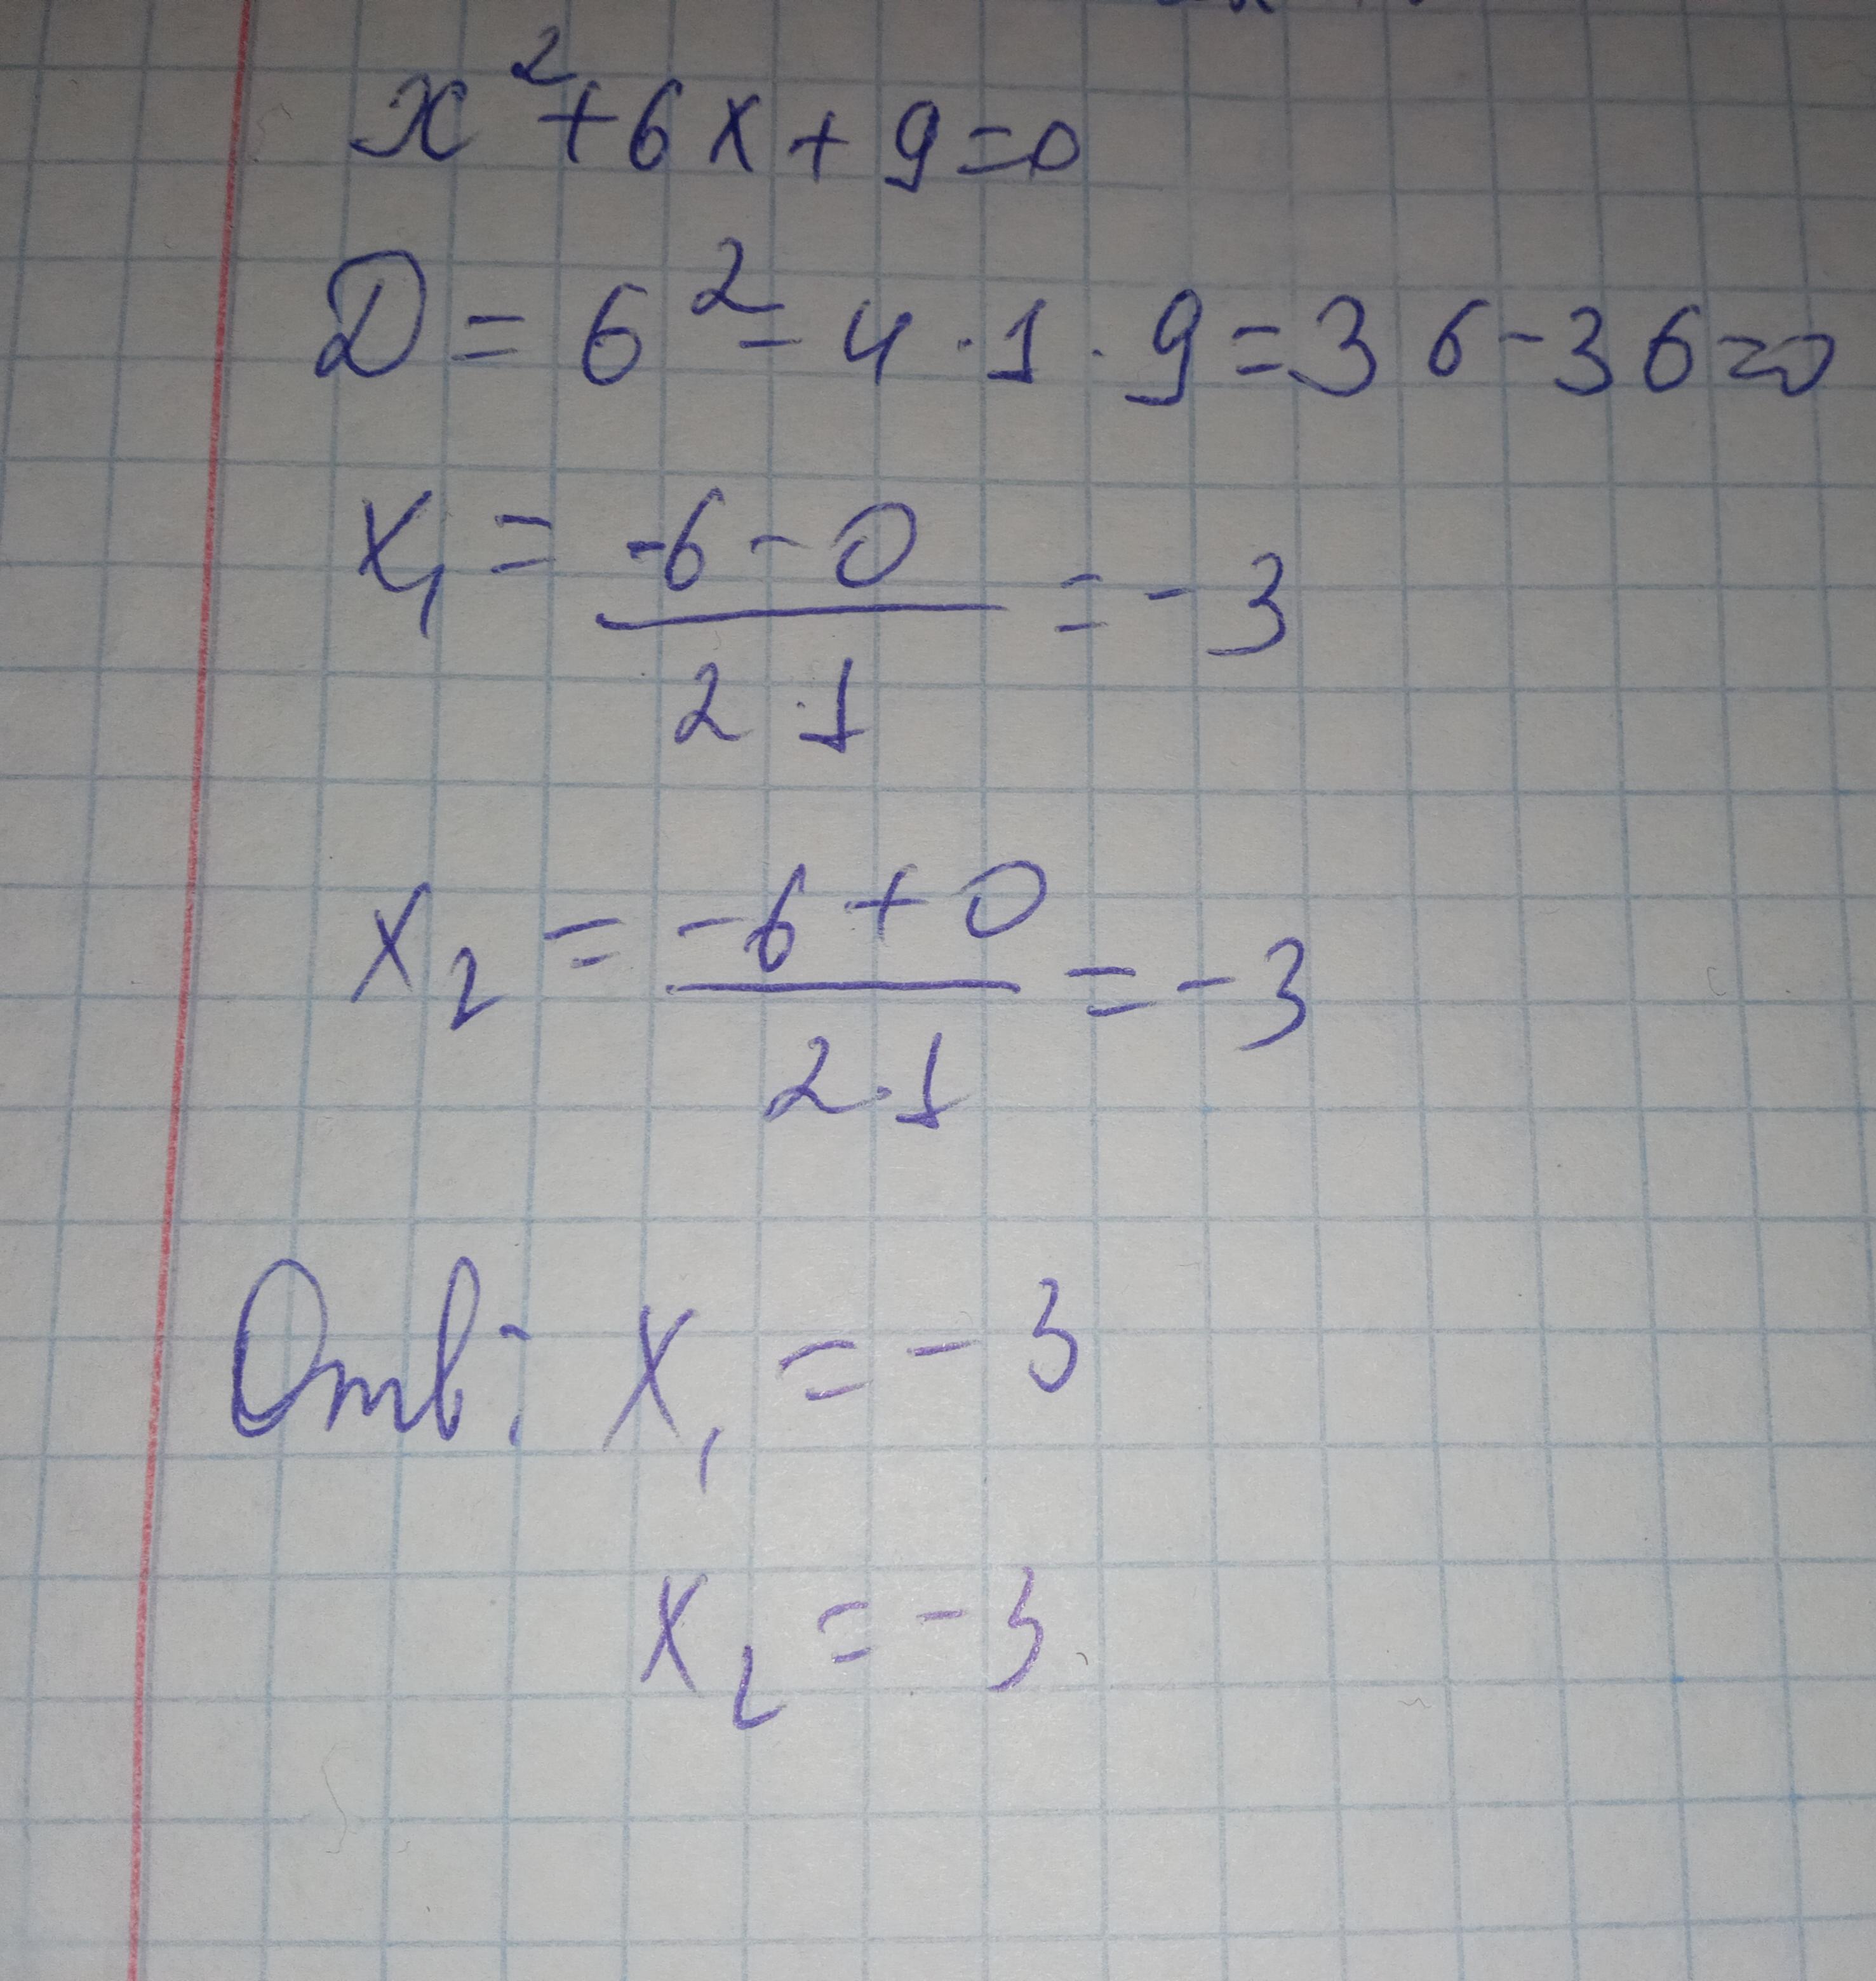 x² + 6x + 9 = 0
D = 6² - 4 · 1 · 9 = 36 - 36 = 0
x₁ = (-6 - 0) / (2 · 1) = -3
x₂ = (-6 + 0) / (2 · 1) = -3
Отв: x₁ = -3
x₂ = -3